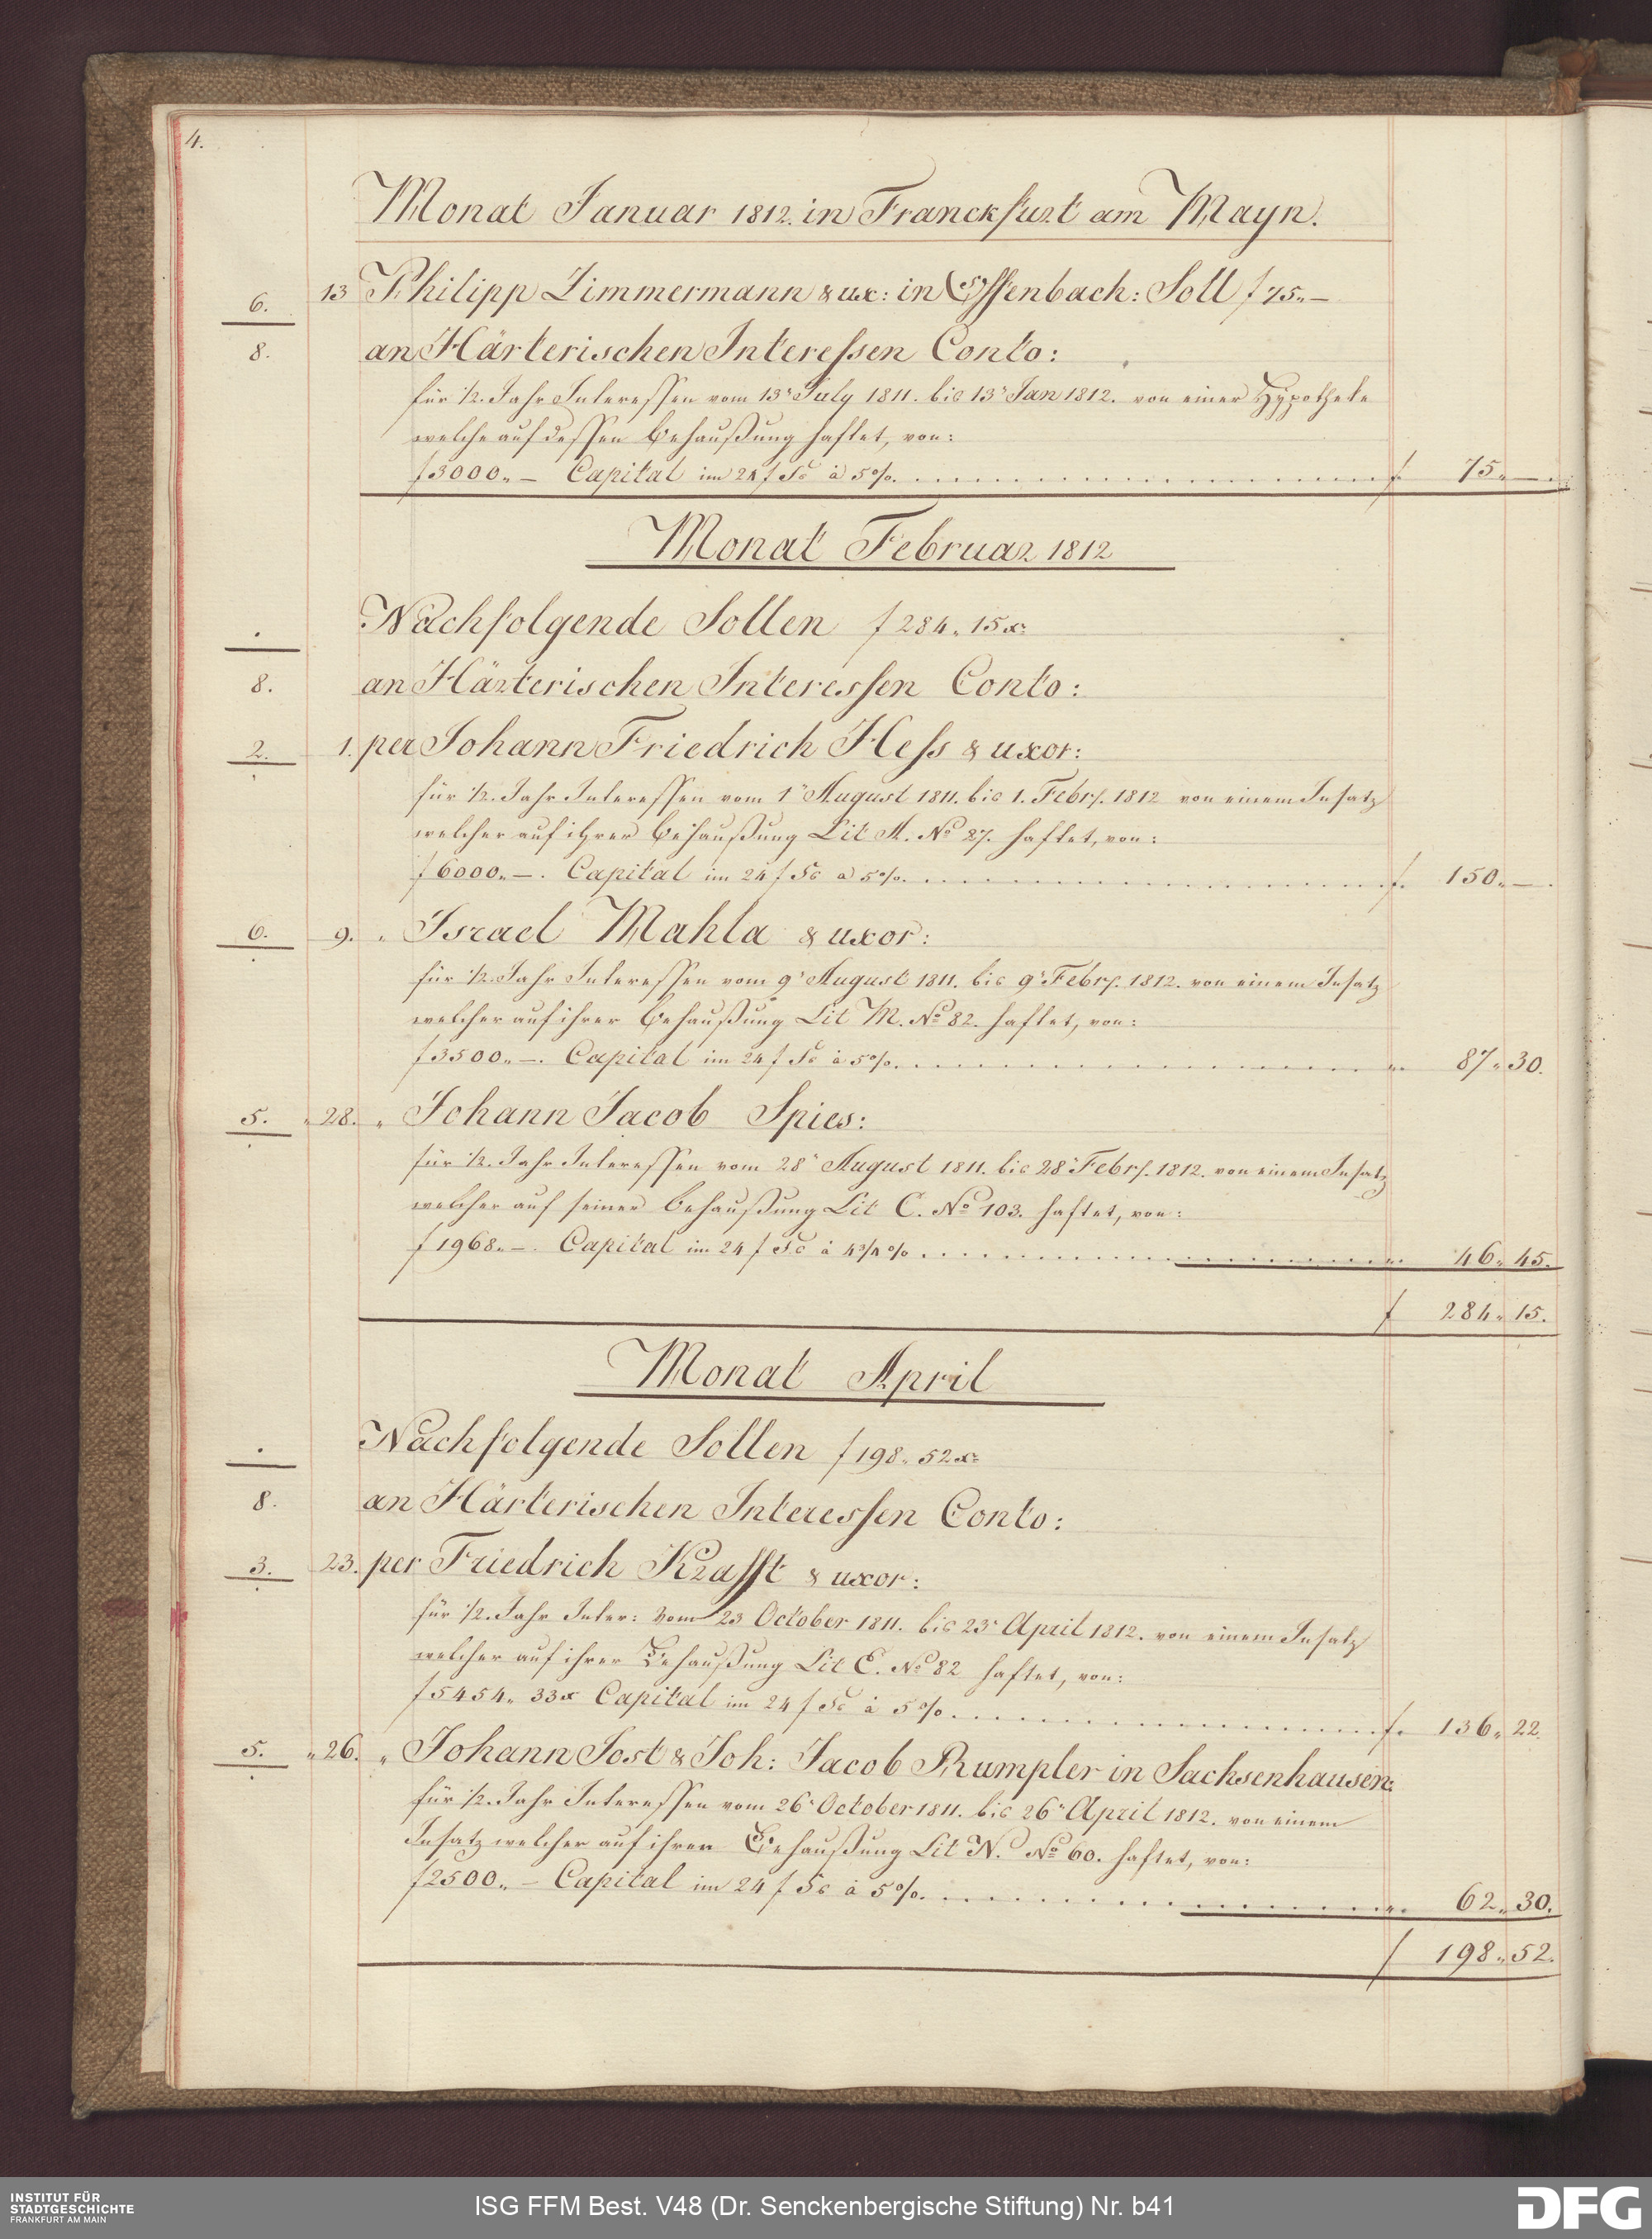 4.
Monat Januar 1812. in Franckfurt am Mayn.
6. 13 Philipp Zimmermann & ux: in Offenbach: Soll f 75„—
8. an Härterischen Interessen Conto:
für ½ Jahr Interessen vom 13r July 1811. bis 13r Jan 1812. von einer Hypotheke
welche auf dessen Behaußung haftet, von:
f 3000„— Capital im 24 f à 5%. f. 75„—
Monat Februar 1812
Nachfolgende Sollen f 284„ 15x
8. an Härterischen Interessen Conto:
2. 1. per Johann Friedrich Hess & uxor:
für ½ Jahr Interessen vom 1r August 1811. bis 1. Febr. 1812 von einem Insatz
welcher auf ihrer Behaußung Lit A. No 87. haftet, von:
f 6000„—. Capital im 24 f à 5%. f. 150„—.
6. 9. „ Israel Mahla & uxor:
für ½ Jahr Interessen vom 9r August 1811. bis 9r Febr. 1812. von einem Insatz
welcher auf ihrer Behaußung Lit M. No 82. haftet, von:
f 3500„—. Capital im 24 f à 5%. „ 87„ 30.
5. „ 28. „ Johann Jacob Spies:
für ½ Jahr Interessen vom 28r August 1811. bis 28r Febr. 1812. von einem Insatz
welcher auf seiner Behaußung Lit C. No 103. haftet, von:
f 1968„—. Capital im 24 f à 4¾% „ 46„ 45.
f 284„ 15.
Monat April
Nachfolgende Sollen f 198„ 52x
8. an Härterischen Interessen Conto:
3. 23. per Friedrich Krafft & uxor:
für ½ Jahr Inter: vom 23 October 1811. bis 23r April 1812. von einem Insatz
welcher auf ihrer Behaußung Lit E. No 82 haftet, von:
f 5454„ 33x Capital im 24 f à 5%. f. 136„ 22.
5. „ 26. „ Johann Jost & Joh: Jacob Rumpler in Sachsenhausen:
für ½ Jahr Interessen vom 26r October 1811. bis 26r April 1812. von einem
Insatz welcher auf ihrer Behaußung Lit N. No 60. haftet, von:
f 2500„— Capital im 24 f à 5%. „ 62„ 30.
f 198„ 52.
INSTITUT FÜR
STADTGESCHICHTE
FRANKFURT AM MAIN
ISG FFM Best. V48 (Dr. Senckenbergische Stiftung) Nr. b41
DFG